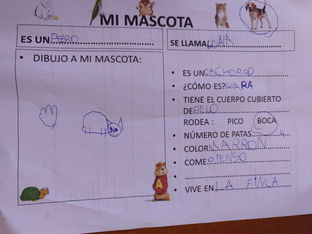 MI MASCOTA
ES UN PERRO
SE LLAMA LUNA
• DIBUJO A MI MASCOTA:
• ES UN CACHORRO
• ¿CÓMO ES? GUARA
• TIENE EL CUERPO CUBIERTO
DE PELO
RODEA: PICO BOCA
• NÚMERO DE PATAS 4
• COLOR MARRON
• COME PIENSO
• VIVE EN LA FINCA
A